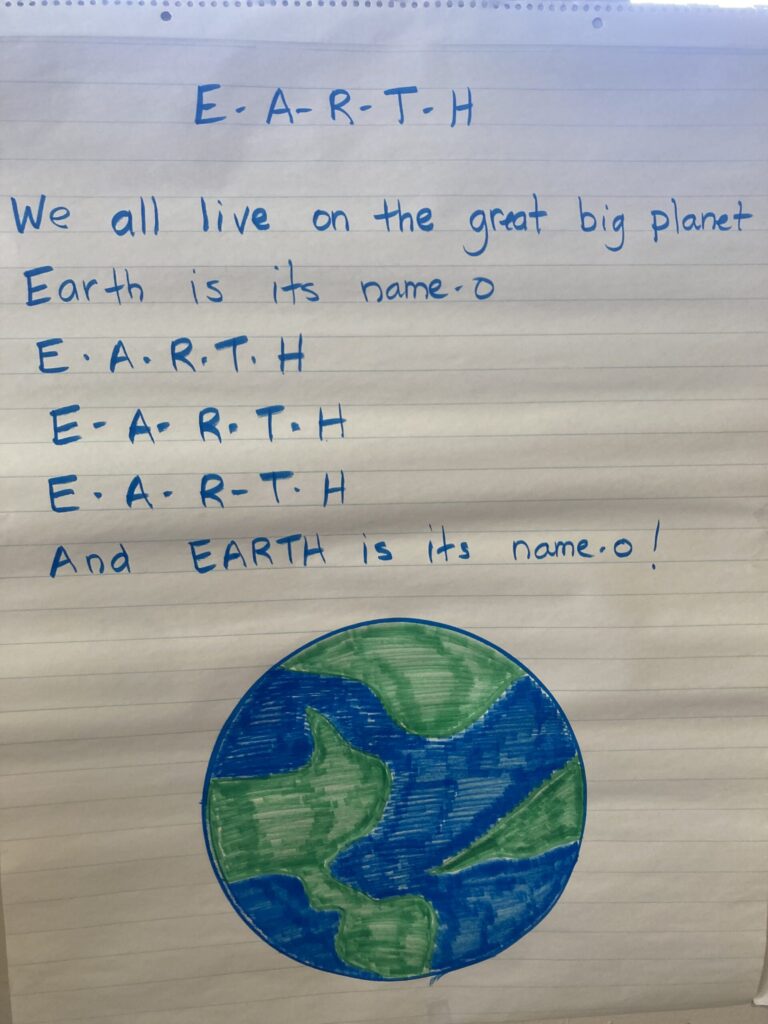 E-A-R-T-H
We all live on the great big planet
Earth is its name-o
E-A-R-T-H
E-A-R-T-H
E-A-R-T-H
And EARTH is its name-o!